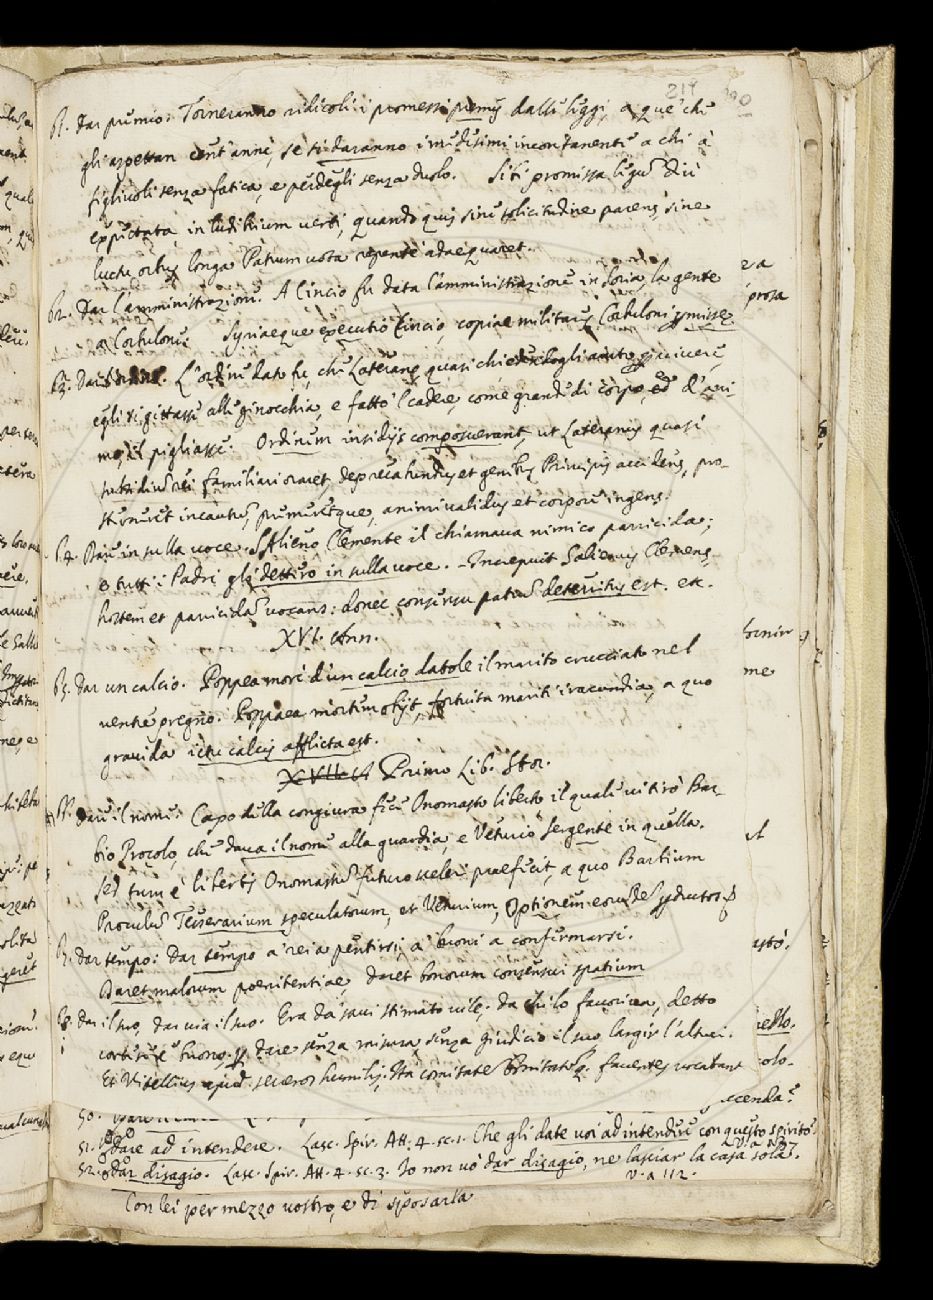 214 200
61. Dar premio: Torneranno ridicoli i promessi premij dalle leggi, a que' che
gli aspettan cent'anni, se si daranno i medesimi incontanenti a chi à
figliuoli senza fatica, e perdegli senza duolo. Sibi promissa legum diu
expectata in ludibrium verti, quando quis sine solicitudine parens, sine
luctu orbus longa Patrum vota repente adaequaret.
62. Dar l'amministrazione. A Cincio fu data l'amministrazione in Soria, la gente
a Corbulone. Syriaeque executio Cincio, copiae militares Corbuloni permissae
63. Dar l'ordine. L'ordine dato fu, che Laterano quasi chiedendogli aiuto per vivere,
egli si gittasse alle ginocchia, e fatto'l cadere, come grande di corpo, ed d'ani-
mo, il pigliasse. Ordinem insidijs composuerant, ut Lateranus quasi
subsidium rei familiari oraret, deprecabundus et genibus Principis accidens, pro-
sterneret incautum, premeretque, animi validus et corpore ingens.
64. Dare in sulla voce. Salieno Clemente il chiamava nimico parricida;
e tutti i Padri gli dettero in sulla voce. Increpuit Salienus Clemens,
hostem et parricidam vocans: donec consensu patrum deterritus est. etc.
XVI. Ann.
65. Dar un calcio. Poppea morì d'un calcio datole il marito crucciato nel
ventre pregno. Poppaea mortem obijt, fortuita mariti iracundia, a quo
gravida ictu calcis afflicta est.
Primo Lib. Stor.
66. Dare il nome: Capo della congiura fece Onomasto liberto il quale vi tirò Bar
bio Procolo, che dava il nome alla guardia, e Veturio sergente in quella.
Sed tum e libertis Onomastum futuro sceleri praeficit, a quo Barbium
Proculum Tesserarium speculatorum, et Veturium, Optionem eorumdem perductos.
67. Dar tempo: Dar tempo a' rei a pentirsi; a' buoni a confirmarsi.
Daret malorum poenitentiae, daret bonorum consensui spatium
68. Dar il suo, dar via il suo. Era da savi stimato vile: da chi lo favoriva, detto
cortese e buono, per dare senza misura, senza giudicio il suo, largir l'altrui.
Et Vitellius apud severos humilis. Ita comitatem bonitatemque faventes vocabant
50.
51. Dare ad intendere. Lasc. Spir. Att. 4. sc. 1. Che gli date voi ad intendere con questo spirito?
52. Dar disagio. Lasc. Spir. Att. 4. sc. 3. Io non vo' dar disagio, ne lasciar la casa sola.
v. a 112.
Con lei per mezzo vostro, e di sposarla